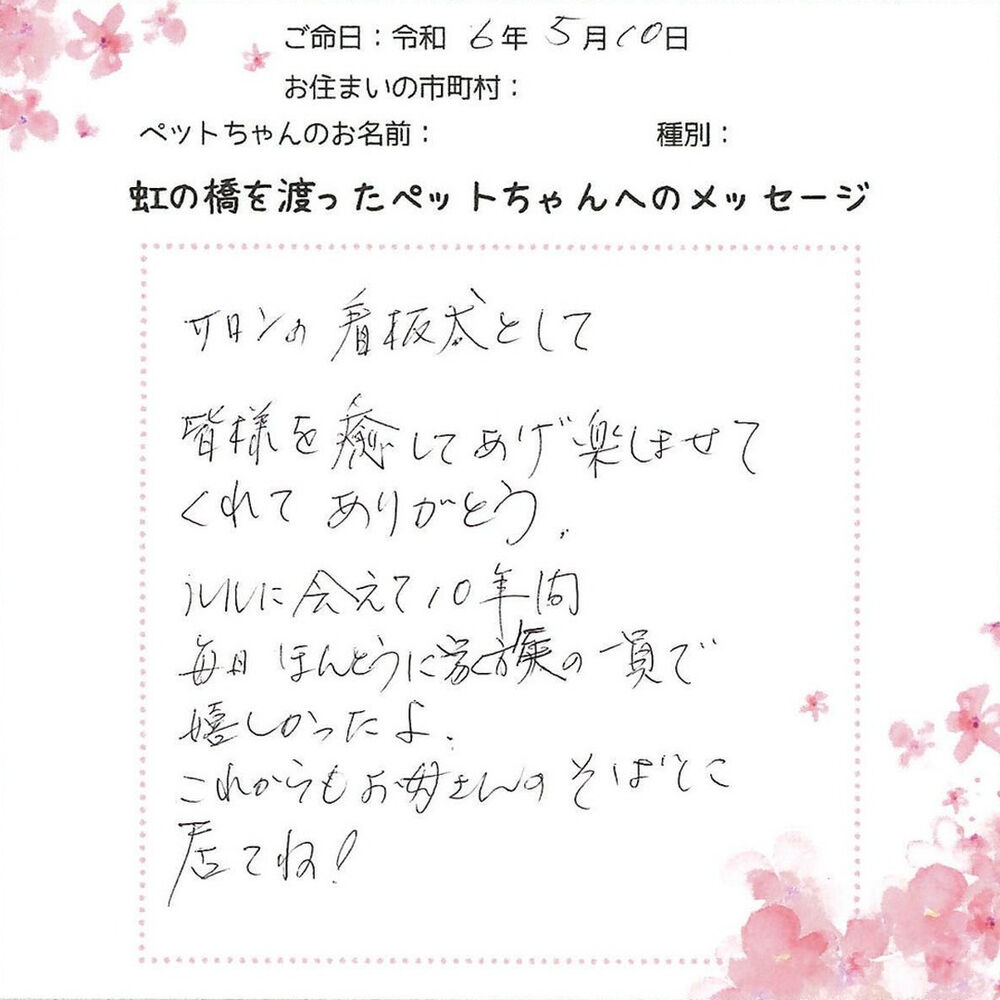 ご命日：令和 6年 5月10日
お住まいの市町村：
ペットちゃんのお名前： 種別：
虹の橋を渡ったペットちゃんへのメッセージ
サロンの看板犬として
皆様を癒してあげ楽しませて
くれてありがとう.
ルルに会えて10年間
毎日ほんとうに家族の一員で
嬉しかったよ.
これからもお母さんのそばに
居てね!